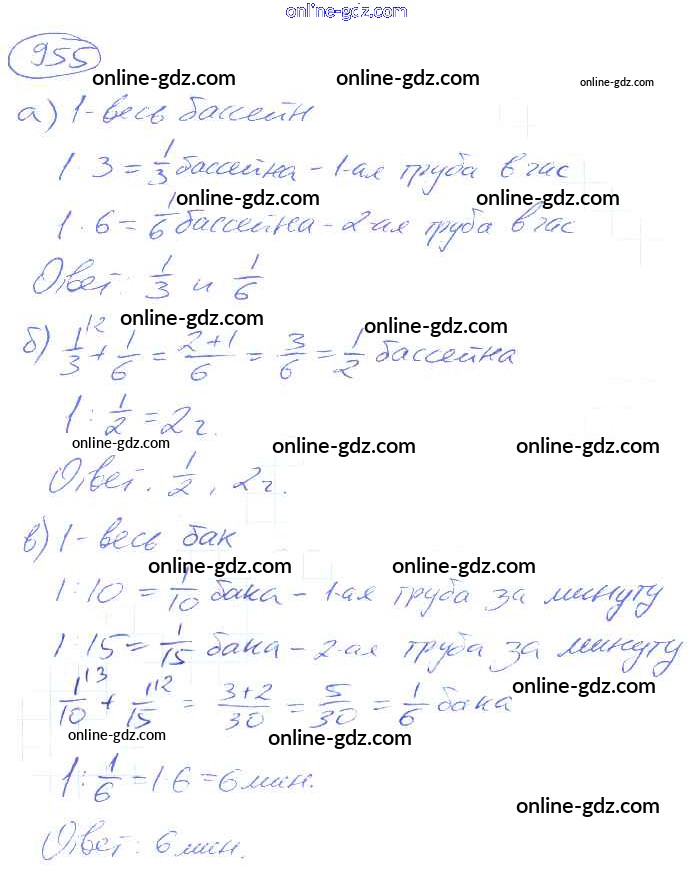 online-gdz.com
955
online-gdz.com online-gdz.com online-gdz.com
а) 1-весь бассейн
1 · 3 = 1/3 бассейна - 1-ая труба в час
online-gdz.com online-gdz.com
1 · 6 = 1/6 бассейна - 2-ая труба в час
Ответ: 1/3 и 1/6
online-gdz.com online-gdz.com
б) 1/3 \2 + 1/6 = 2+1/6 = 3/6 = 1/2 бассейна
1 : 1/2 = 2 ч.
online-gdz.com online-gdz.com online-gdz.com
Ответ: 1/2, 2 ч.
в) 1 - весь бак
online-gdz.com online-gdz.com
1 : 10 = 1/10 бака - 1-ая труба за минуту
1 : 15 = 1/15 бака - 2-ая труба за минуту
online-gdz.com online-gdz.com
1/10 \3 + 1/15 \2 = 3+2/30 = 5/30 = 1/6 бака
online-gdz.com online-gdz.com
1 : 1/6 = 1·6 = 6 мин.
online-gdz.com
Ответ: 6 мин.
online-gdz.com online-gdz.com